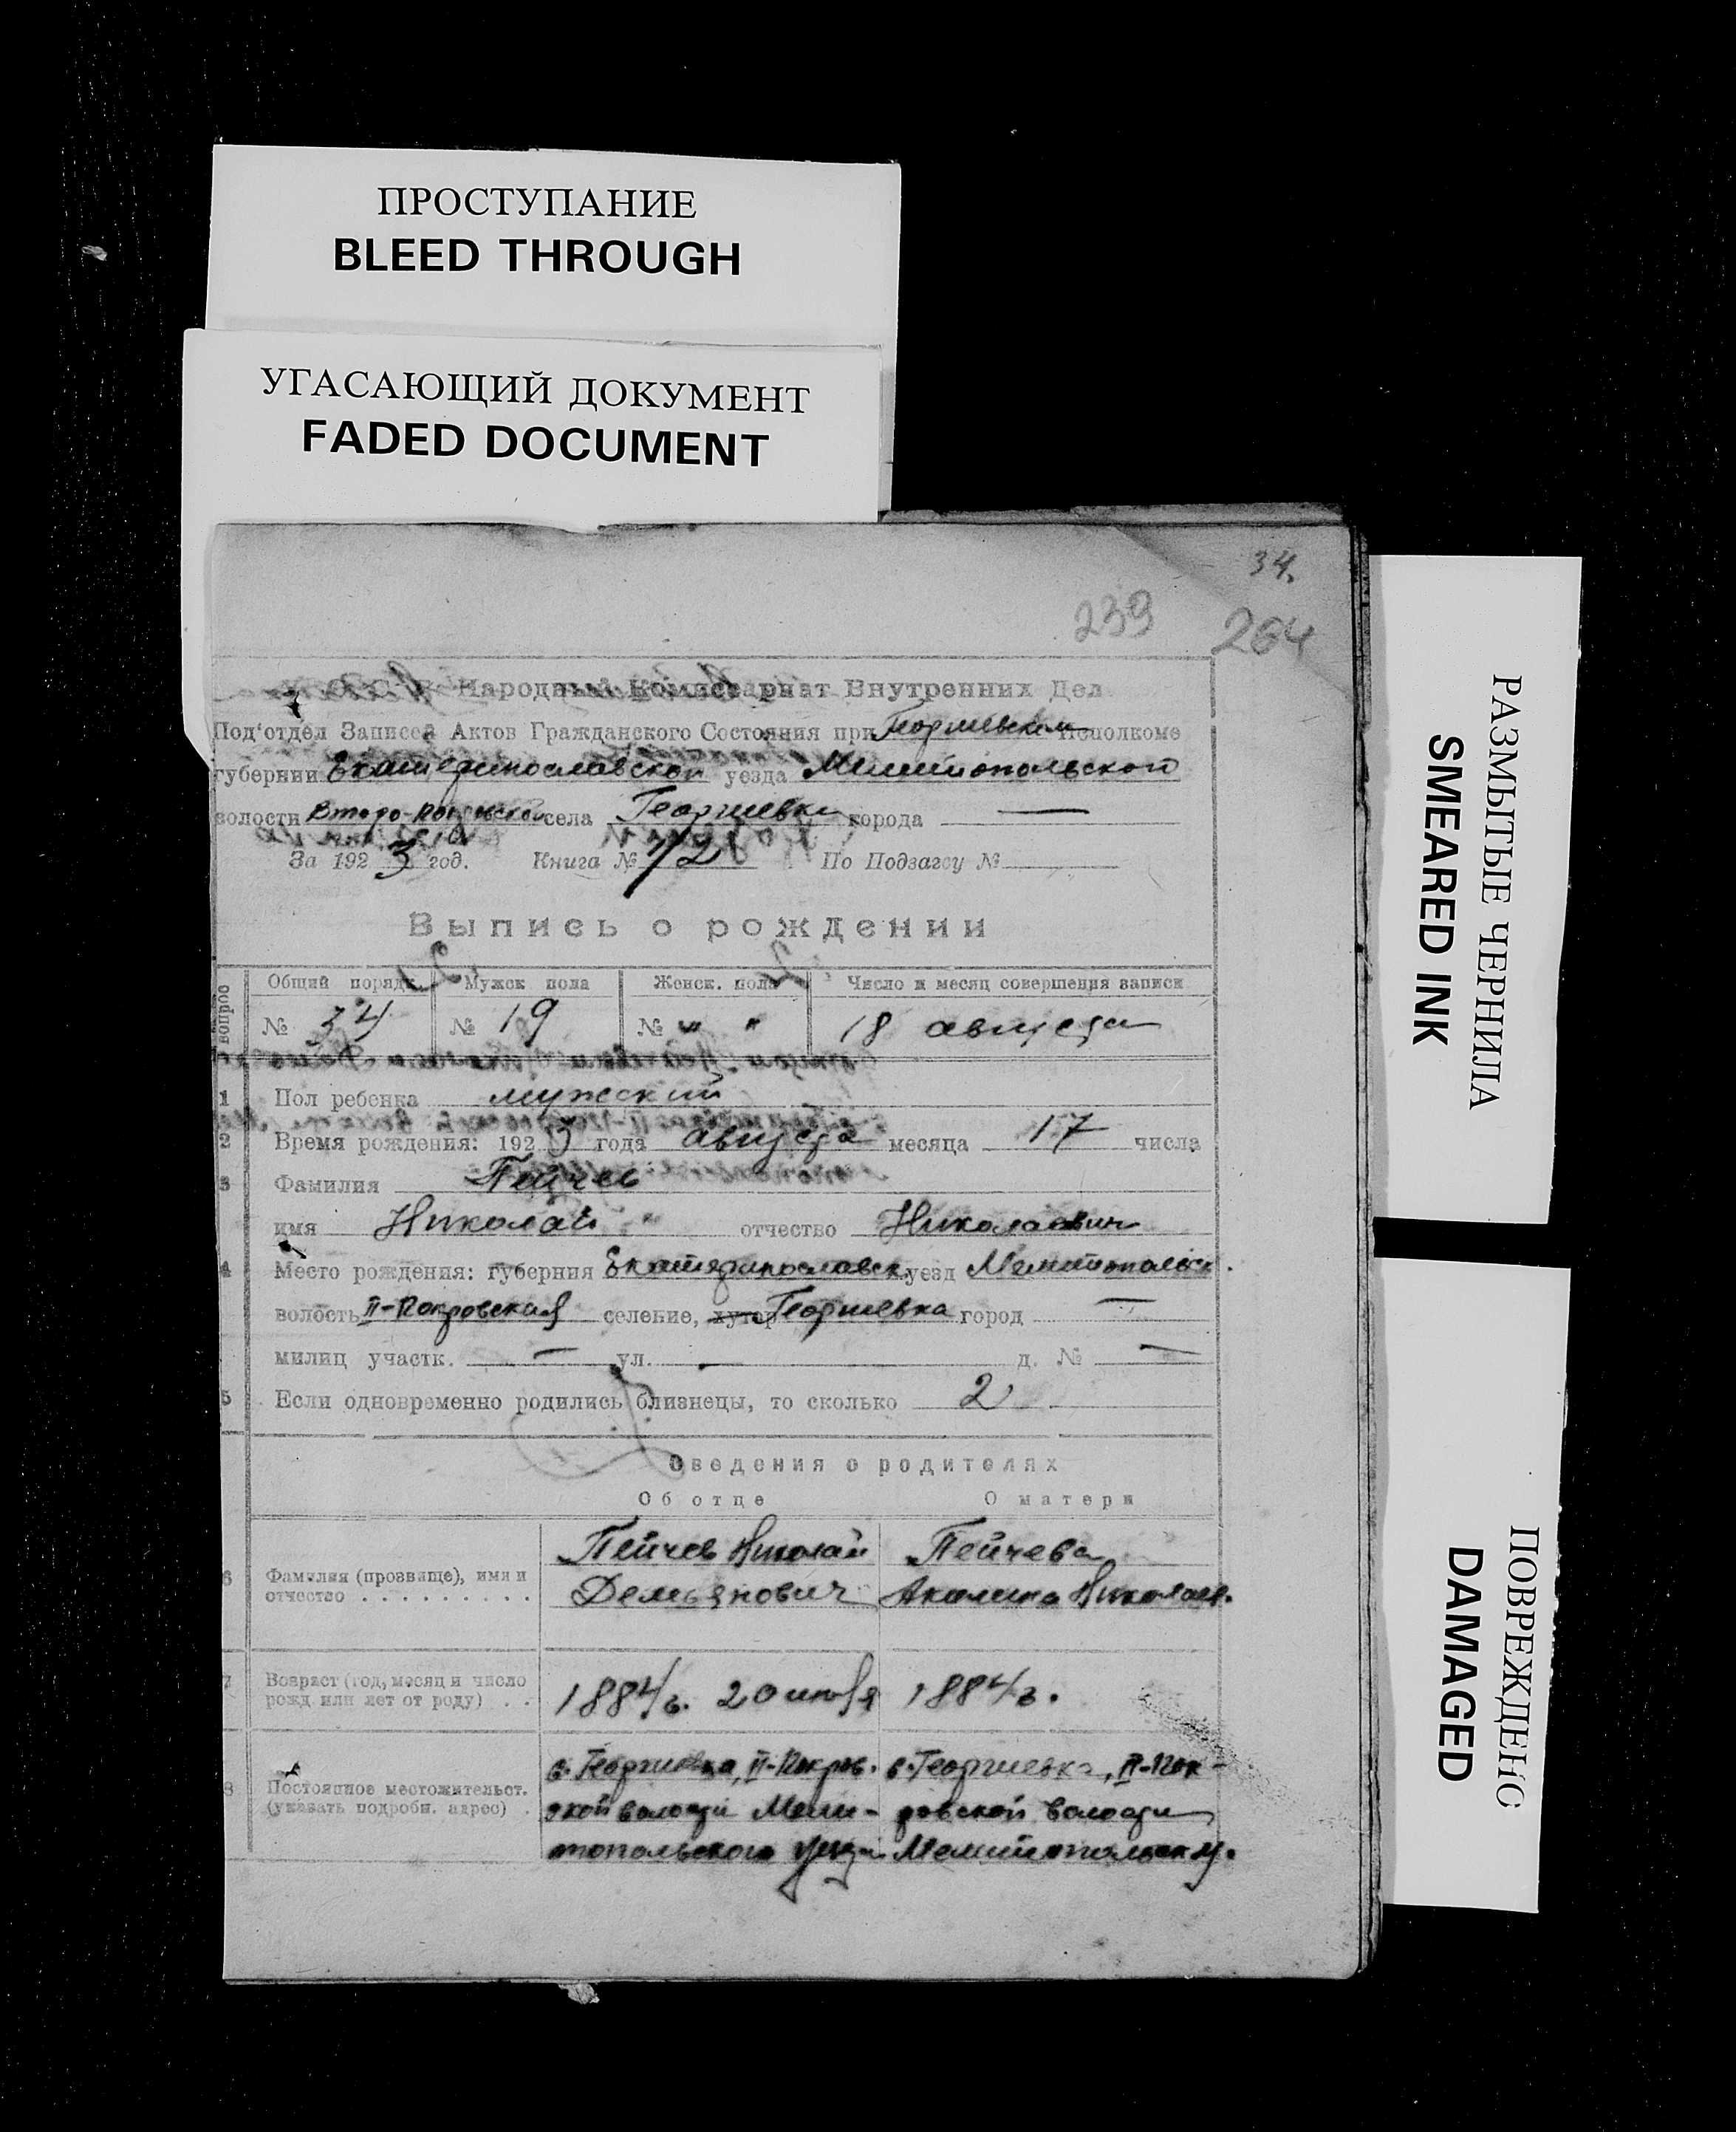 ПРОСТУПАНИЕ
BLEED THROUGH
УГАСАЮЩИЙ ДОКУМЕНТ
FADED DOCUMENT
34.
239 264
Народный Комиссариат Внутренних Дел
Под'отдел Записей Актов Гражданского Состояния при Исполкоме
губернии Екатеринославской уезда Мелитопольской
волости Второ-Покровской села Георгиевки города —
За 1923 год. Книга № 1/2 По Подзагсу №
Выпись о рождении
вопрос Общий порядк. Мужск пола Женск. пола Число и месяц совершения записи
№ 34 № 19 № " " 18 августа
1 Пол ребенка мужской
2 Время рождения: 1923 года августа месяца 17 числа
3 Фамилия Пейчев
имя Николай отчество Николаевич
4 Место рождения: губерния Екатеринославск. уезд Мелитопольск.
волость II-Покровская селение, хутор Георгиевка город —
милиц участк. — ул. д. № —
5 Если одновременно родились близнецы, то сколько 2
Сведения о родителях
Об отце О матери
6 Фамилия (прозвище), имя и отчество . . . . . . . . . .
Пейчев Николай Пейчева
Демьянович Акилина Николаев.
7 Возраст (год, месяц и число рожд. или лет от роду) . .
1884 г. 1884 г.
8 Постоянное местожительст. (указать подробн. адрес) .
с. Георгиевка, II-Покров. с. Георгиевка, II-Пок-
ской волости Мели- ровской волости
топольского уезда Мелитопольск у.
РАЗМЫТЫЕ ЧЕРНИЛА
SMEARED INK
ПОВРЕЖДЕНО
DAMAGED